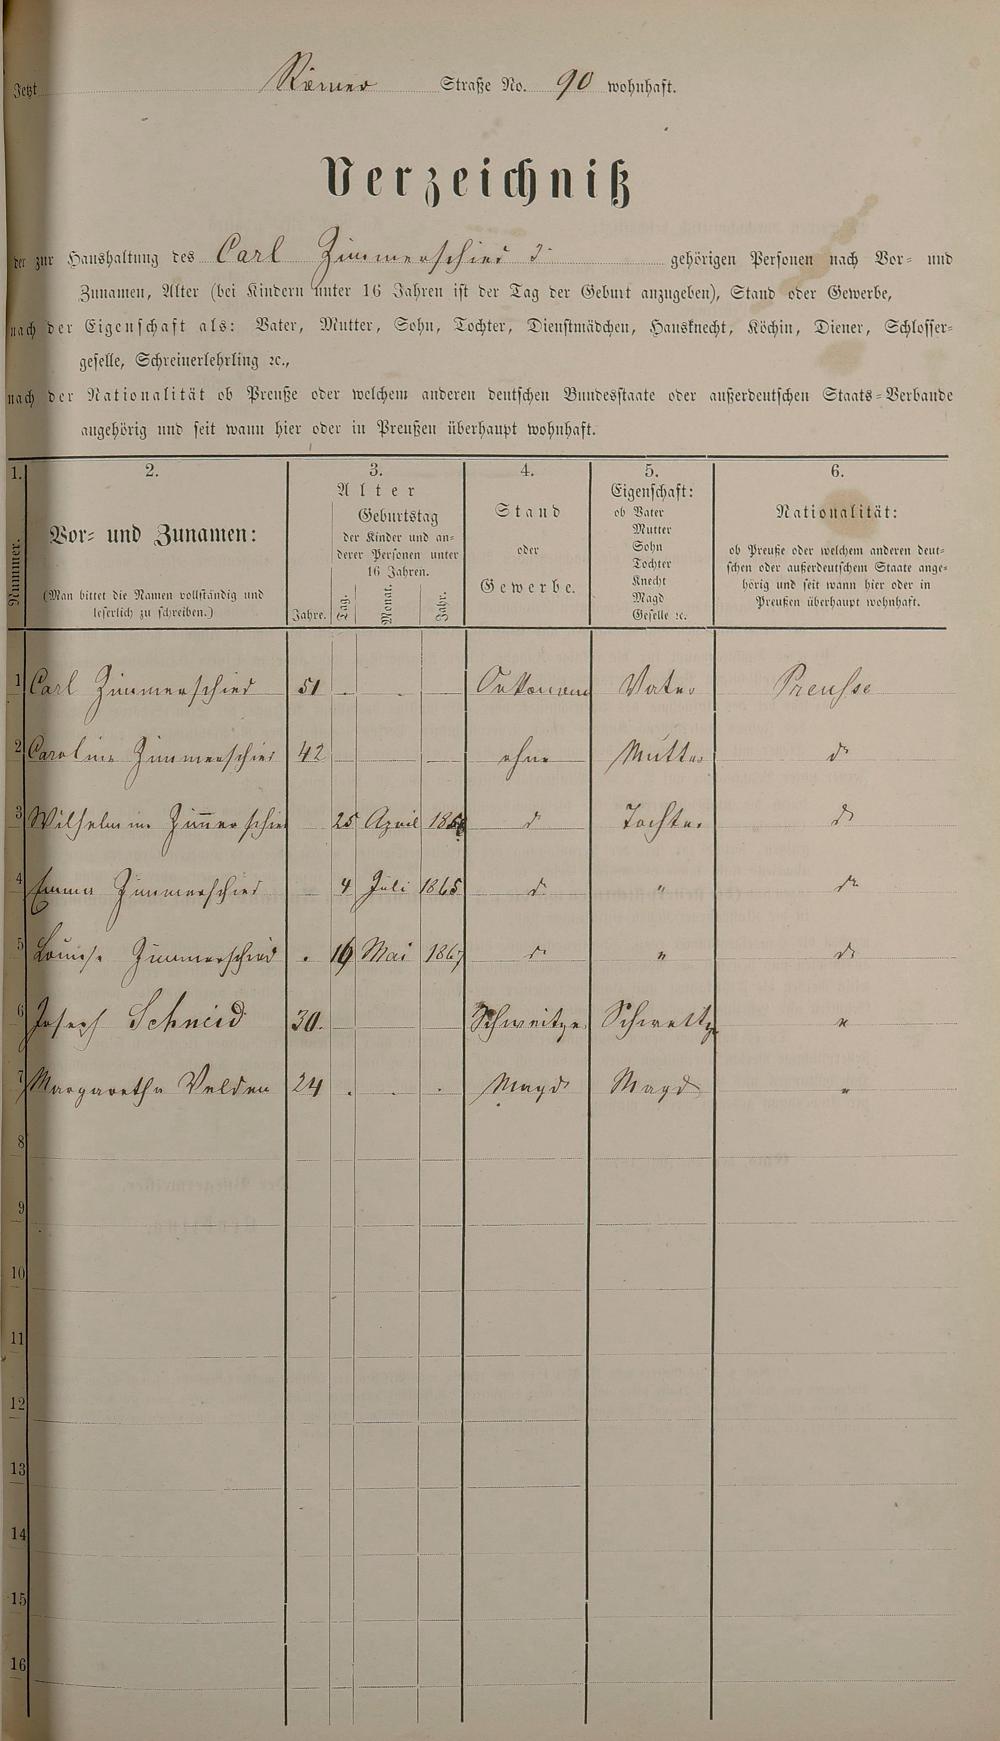 Jetzt Römer Straße No. 90 wohnhaft.
Verzeichniß
der zur Haushaltung des Carl Zimmerschied gehörigen Personen nach Vor- und
Zunamen, Alter (bei Kindern unter 16 Jahren ist der Tag der Geburt anzugeben), Stand oder Gewerbe,
nach der Eigenschaft als: Vater, Mutter, Sohn, Tochter, Dienstmädchen, Hausknecht, Köchin, Diener, Schlosser-
geselle, Schreinerlehrling ꝛc.,
nach der Nationalität ob Preuße oder welchem anderen deutschen Bundesstaate oder außerdeutschen Staats-Verbande
angehörig und seit wann hier oder in Preußen überhaupt wohnhaft.
1. 2. 3. 4. 5. 6.
Nummer.
Vor- und Zunamen:
(Man bittet die Namen vollständig und
leserlich zu schreiben.)
Alter
Jahre.
Geburtstag
der Kinder und an-
derer Personen unter
16 Jahren.
Tag. Monat. Jahr.
Stand
oder
Gewerbe.
Eigenschaft:
ob Vater
Mutter
Sohn
Tochter
Knecht
Magd
Geselle ꝛc.
Nationalität:
ob Preuße oder welchem anderen deut-
schen oder außerdeutschem Staate ange-
hörig und seit wann hier oder in
Preußen überhaupt wohnhaft.
1 Carl Zimmerschied 51 . . Oekonom Vater Preusse
2 Caroline Zimmerschied 42 — — — ohne Mutter do
3 Wilhelmine Zimerschied 25 April do Tochter do
4 Emma Zimmerschied 4 Juli 1865 do " do
5 Louise Zimmerschied . 19 Mai 1867 do " do
6 Joseph Schneid 30. Schweitzer Schweitzer "
7 Margaretha Velden 24 . . . Magd Magd "
8
9
10
11
12
13
14
15
16